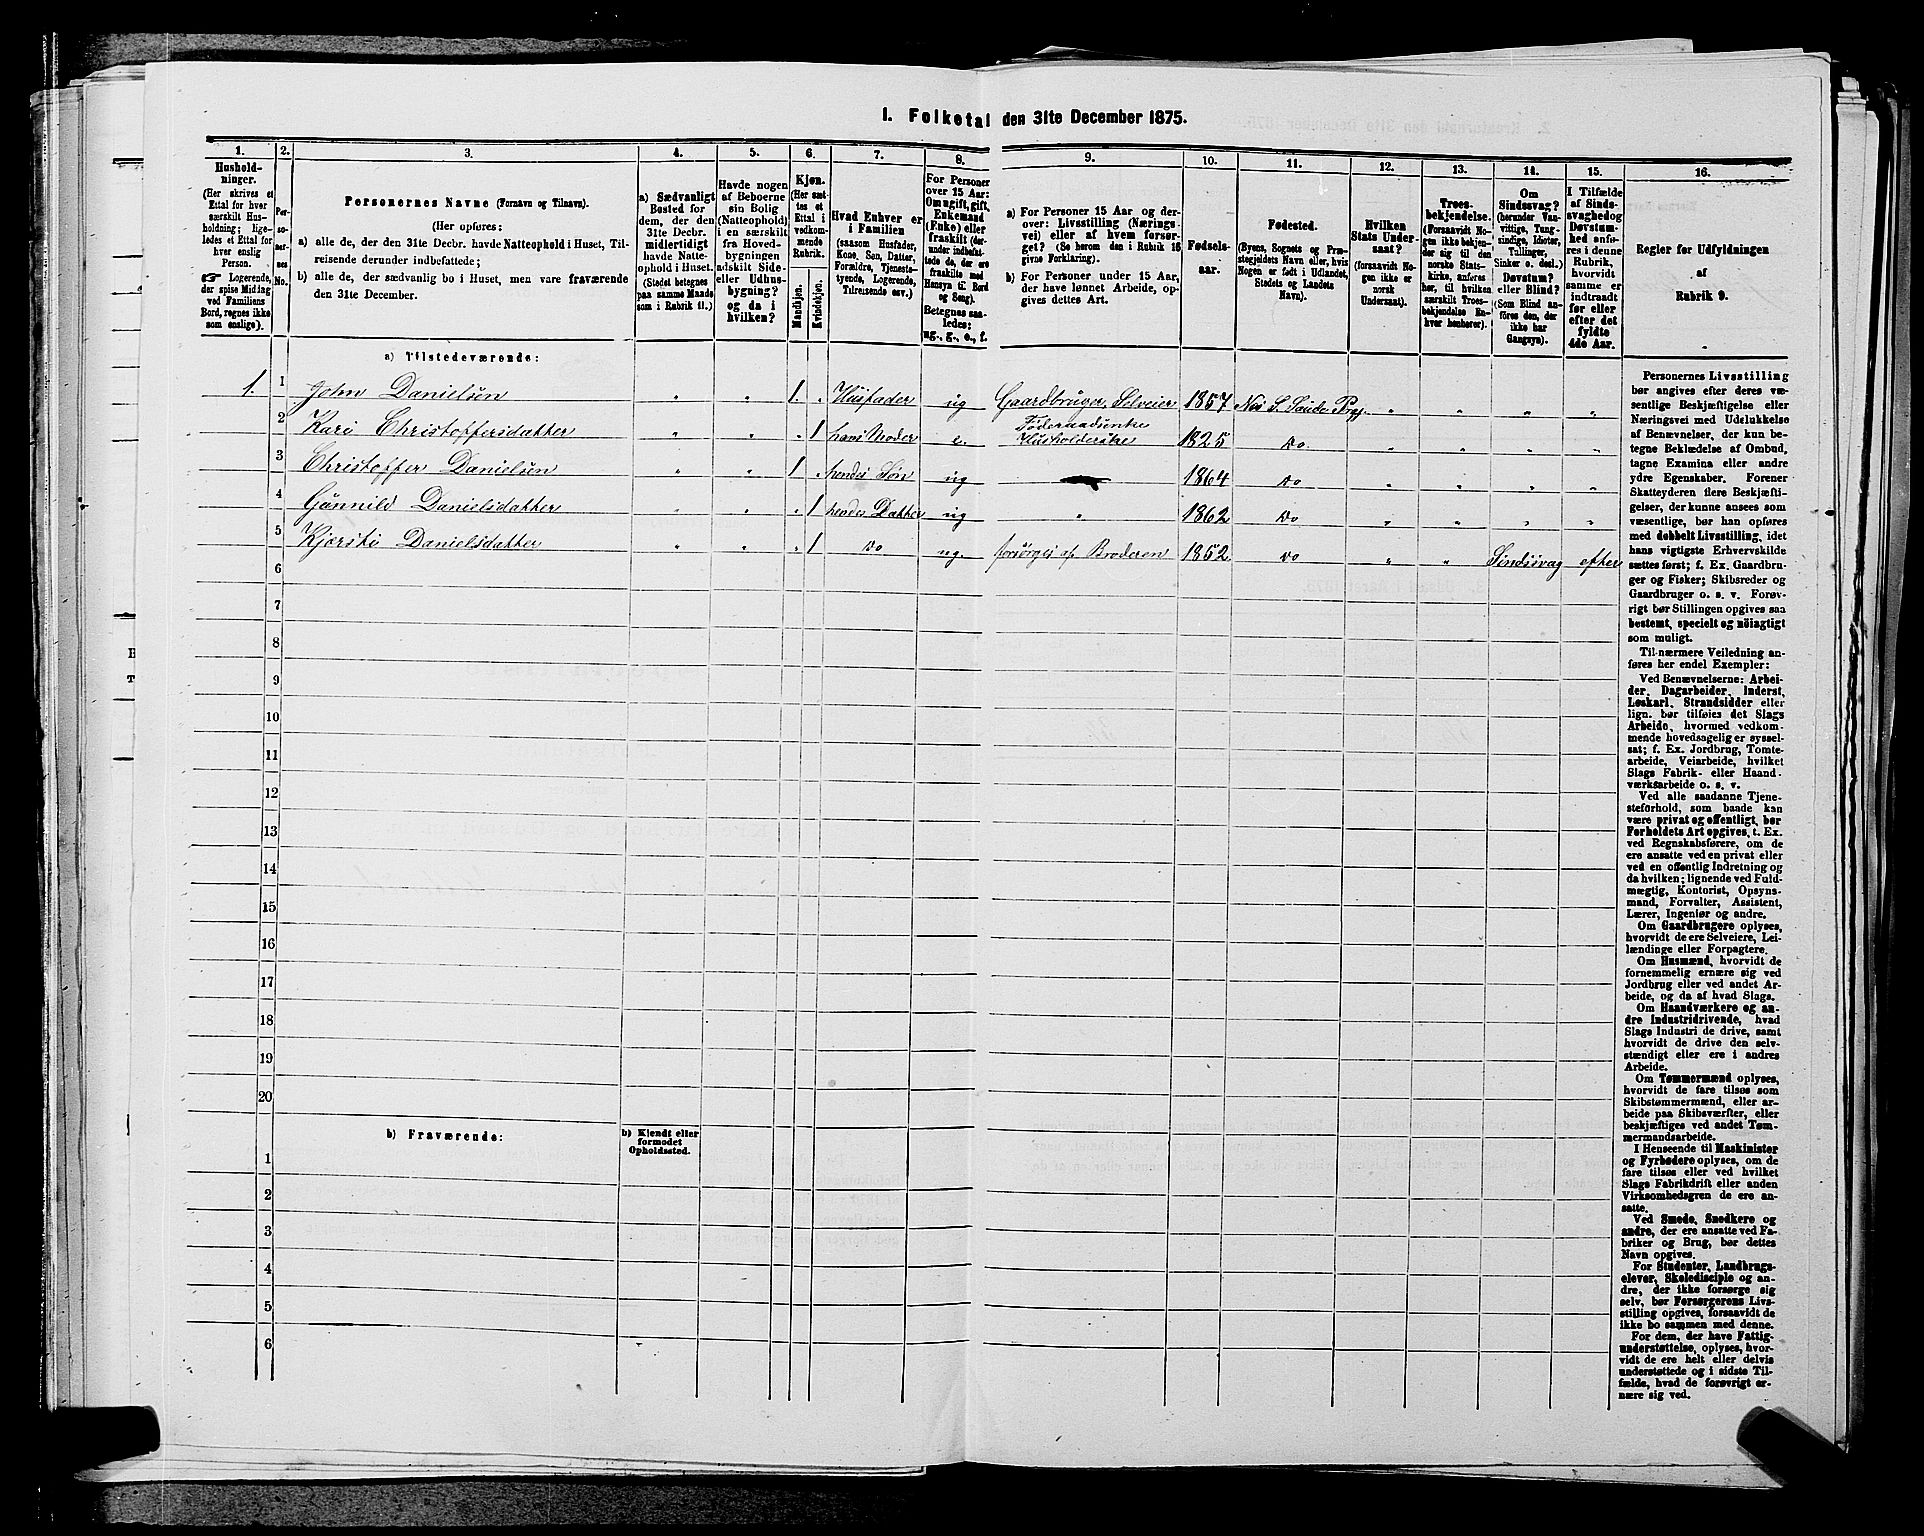 1. Folketal den 31te December 1875.
1. 2. 3. 4. 5. 6. 7. 8. 9. 10. 11. 12. 13. 14. 15. 16.
Hushold-
ninger.
(Her skrives et
Ettal for hver
særskilt Hus-
holdning; lige-
ledes et Ettal for
hver enslig
Person.
Logerende,
der spise Middag
ved Familiens
Bord, regnes ikke
som enslige).
Per-
so-
ner-
nes
No.
Personernes Navne (Fornavn og Tilnavn).
(Her opføres:
a) alle de, der den 31te Decbr. havde Natteophold i Huset, Til-
reisende derunder indbefattede;
b) alle de, der sædvanlig bo i Huset, men vare fraværende
den 31te December.
a) Sædvanligt
Bosted for
dem, der den
31te Decbr.
midlertidigt
havde Natte-
ophold i Huset.
(Stedet betegnes
paa samme Maade
som i Rubrik 11.)
Havde nogen
af Beboerne
sin Bolig
(Natteophold)
i en særskilt
fra Hoved-
bygningen
adskilt Side-
eller Udhus-
bygning?
og da i
hvilken?
Kjøn.
(Her sæt-
tes et
Ettal i
vedkom-
mende
Rubrik.
Mandkjøn.
Kvindekjøn.
Hvad Enhver er
i Familien
(saasom Husfader,
Kone, Søn, Datter,
Forældre, Tjeneste-
tyende, Logerende,
Tilreisende osv.)
For Personer
over 15 Aar:
Om ugift, gift,
Enkemand
(Enke) eller
fraskilt (der-
under indbefat-
tede de, der ere
fraskilte med
Hensyn til Bord
og Seng).
Betegnes saa-
ledes:
ug., g., e., f.
a) For Personer 15 Aar og der-
over: Livsstilling (Nærings-
vei) eller af hvem forsør-
get? (Se herom den i Rubrik 16
givne Forklaring).
b) For Personer under 15 Aar,
der have lønnet Arbeide, op-
gives dettes Art.
Fødsels-
aar.
Fødested.
(Byens, Sognets og Præ-
stegjeldets Navn eller, hvis
Nogen er født i Udlandet,
Stedets og Landets
Navn).
Hvilken
Stats Under-
saat?
(forsaavidt No-
gen ikke er
norsk
Undersaat).
Troes-
bekjendelse.
(Forsaavidt No-
gen ikke bekjen-
der sig til den
norske Stats-
kirke, anføres
her, til hvilken
særskilt Troes-
bekjendelse En-
hver henhører).
Om
Sindssvag?
(herunder Van-
vittige, Tung-
sindige, Idioter,
Tullinger,
Sinker o. desl.)
Døvstum?
eller Blind?
(Som Blind an-
føres den, der
ikke har
Gangsyn).
I Tilfælde
af Sinds-
svaghed og
Døvstum-
hed anfø-
res i denne
Rubrik,
hvorvidt
samme er
indtraadt
før eller
efter det
fyldte
4de Aar.
Regler for Udfyldningen
af
Rubrik 9.
a) Tilstedeværende:
1. 1 John Danielsen " " 1. " Husfader ug Gaardbruger, Selveier 1857 Næs S. Saude Prgj. " " " "
2 Kari Christoffersdatter " " " 1 hans Moder e. Føderaadsenke
Husholderske 1825 Do " " " "
3 Christoffer Danielsen " " 1 " hendes Søn ug 1864 Do " " " "
4 Gunnild Danielsdatter " " " 1 hendes Datter ug " 1862 Do " " " "
5 Kjersti Danielsdatter " " " 1 Do ug. forsørges af Broderen 1852 Do " " Sindssvag efter
6
7
8
9
10
11
12
13
14
15
16
17
18
19
20
b) Fraværende:
b) Kjendt eller
formodet
Opholdssted.
1
2
3
4
5
6
Personernes Livsstilling
bør angives efter deres væ-
sentlige Beskjæftigelse eller
Næringsvei med Udelukkelse
af Benævnelser, der kun be-
tegne Beklædelse af Ombud,
tagne Examina eller andre
ydre Egenskaber. Forener
Skatteyderen flere Beskjæfti-
gelser, der kunne ansees som
væsentlige, bør han opføres
med dobbelt Livsstilling, idet
hans vigtigste Erhvervskilde
sættes først; f. Ex. Gaardbru-
ger og Fisker; Skibsreder og
Gaardbruger o. s. v. Forøv-
rigt bør Stillingen opgives saa
bestemt, specielt og nöiagtigt
som muligt.
Til nærmere Veiledning an-
føres her endel Exempler:
Ved Benævnelserne: Arbei-
der, Dagarbeider, Inderst,
Løskarl, Strandsidder eller
lign. bør tilføies det Slags
Arbeide, hvormed vedkom-
mende hovedsagelig er syssel-
sat; f. Ex. Jordbrug, Tomte-
arbeide, Veiarbeide, hvilket
Slags Fabrik- eller Haand-
værksarbeide o. s. v.
Ved alle saadanne Tjene-
steforhold, som baade kan
være privat og offentligt, bør
Forholdets Art opgives, t. Ex.
ved Regnskabsførere, om de
ere ansatte ved en privat eller
ved en offentlig Indretning og
da hvilken; lignende ved Fuld-
mægtig, Kontorist, Opsyns-
mand, Forvalter, Assistent,
Lærer, Ingeniør og andre.
Om Gaardbrugere oplyses,
hvorvidt de ere Selveiere, Lei-
lændinge eller Forpagtere.
Om Husmænd, hvorvidt de
fornemmelig ernære sig ved
Jordbrug eller ved andet Ar-
beide, og da af hvad Slags.
Om Haandværkere og an-
dre Industridrivende, hvad
Slags Industri de drive, samt
hvorvidt de drive den selv-
stændigt eller ere i andres
Arbeide.
Om Tømmermænd oplyses,
hvorvidt de fare tilsøs som
Skibstømmermænd, eller ar-
beide paa Skibsværfter, eller
beskjæftiges ved andet Tøm-
mermandsarbeide.
I Henseende til Maskinister
og Fyrbødere oplyses, om de
fare tilsøs eller ved hvilket
Slags Fabrikdrift eller anden
Virksomhedsgren de ere an-
satte.
Ved Smede, Snedkere og
andre, der ere ansatte ved Fa-
briker og Brug, bør dettes
Navn opgives.
For Studenter, Landbrugs-
elever, Skoledisciple og an-
dre, der ikke forsørge sig
selv, bør Forsørgerens Livs-
stilling opgives, forsaavidt de
ikke bo sammen med denne.
For dem, der have Fattig-
understøttelse, oplyses, hvor-
vidt de ere helt eller delvis
understøttede og i sidste Til-
fælde, hvad de forøvrigt er-
nære sig ved.